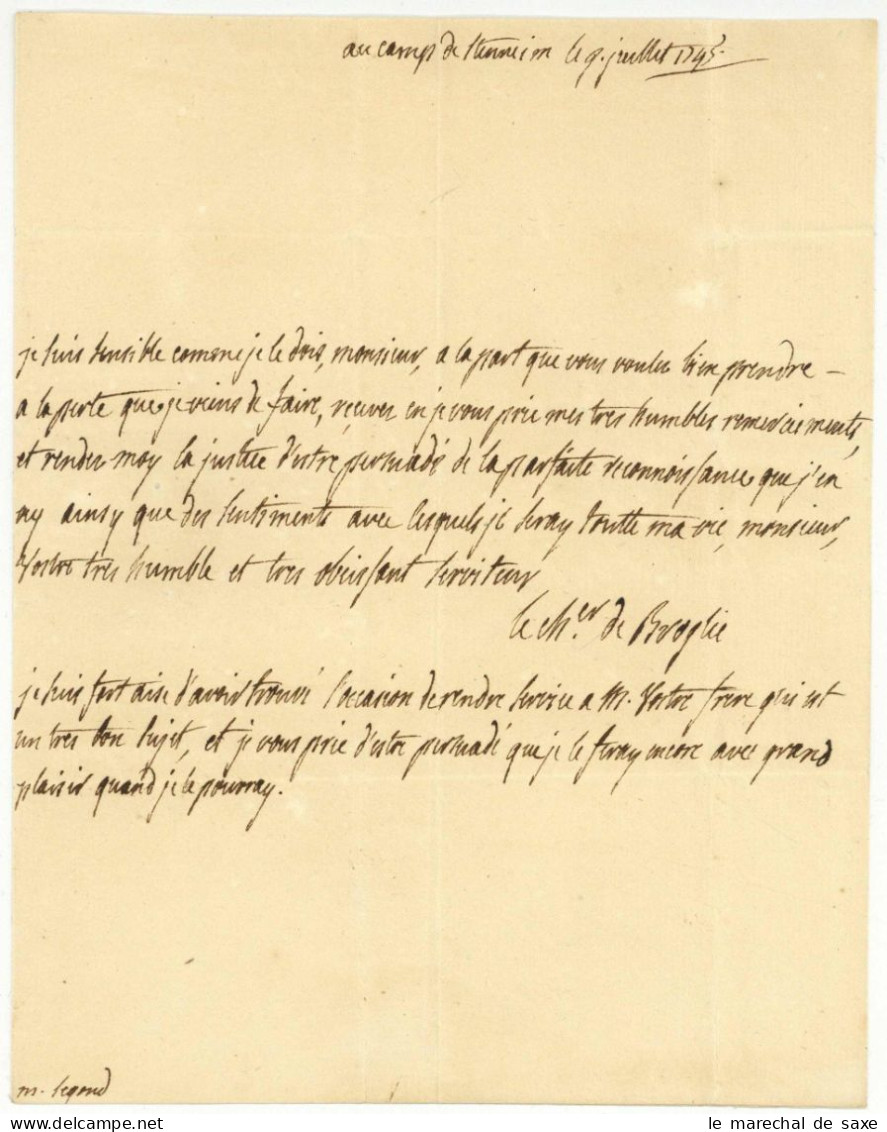 au camp de Stenneim le 9. juillet 1745.
je suis sensible comme je le dois, monsieur, a la part que vous voulez bien prendre –
a la perte que je viens de faire, reçuves en je vous prie mes tres humbles remerciements,
et rendes moy la justice d'estre persuadé de la parfaite reconnoissance que j'en
ay ainsy que des sentiments avec lesquels je seray toutte ma vie, monsieur,
Vostre tres humble et tres obeissant serviteur
le Ch.er de Broglie
je suis fort aise d'avoir trouvé l'occasion de rendre service a M. Vostre frere qui est
un tres bon sujet, et je vous prie d'estre persuadé que je le feray encore avec grand
plaisir quand je le pourray.
m. segond
le marechal de saxe